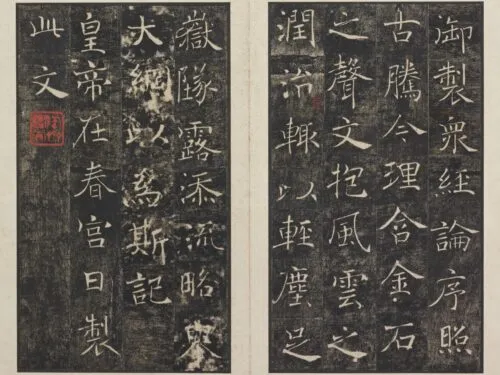 御製衆經論序照
古騰今理含金石
之聲文抱風雲之
潤治輒以輕塵足
嶽墜露添流略舉
大綱以爲斯記
皇帝在春宮日製
此文